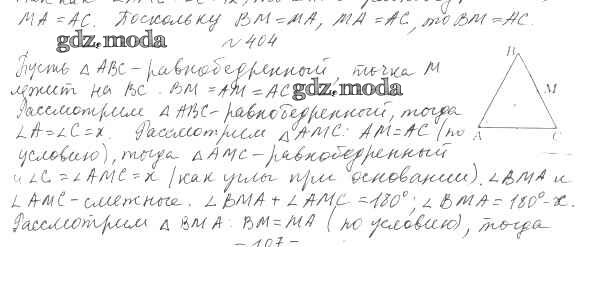 MA = AC. Поскольку BM = MA, MA = AC, то BM = AC.
gdz.moda
№ 404
Пусть △ ABC - равнобедренный, точка M
лежит на BC. BM = AM = AC gdz.moda
Рассмотрим △ ABC - равнобедренный, тогда
∠A = ∠C = x. Рассмотрим △ AMC: AM = AC (по
условию), тогда △ AMC - равнобедренный
и ∠C = ∠AMC = x (как углы при основании). ∠BMA и
∠AMC - смежные. ∠BMA + ∠AMC = 180°; ∠BMA = 180° - x.
Рассмотрим △ BMA: BM = MA (по условию), тогда
- 107 -
B
M
A
C